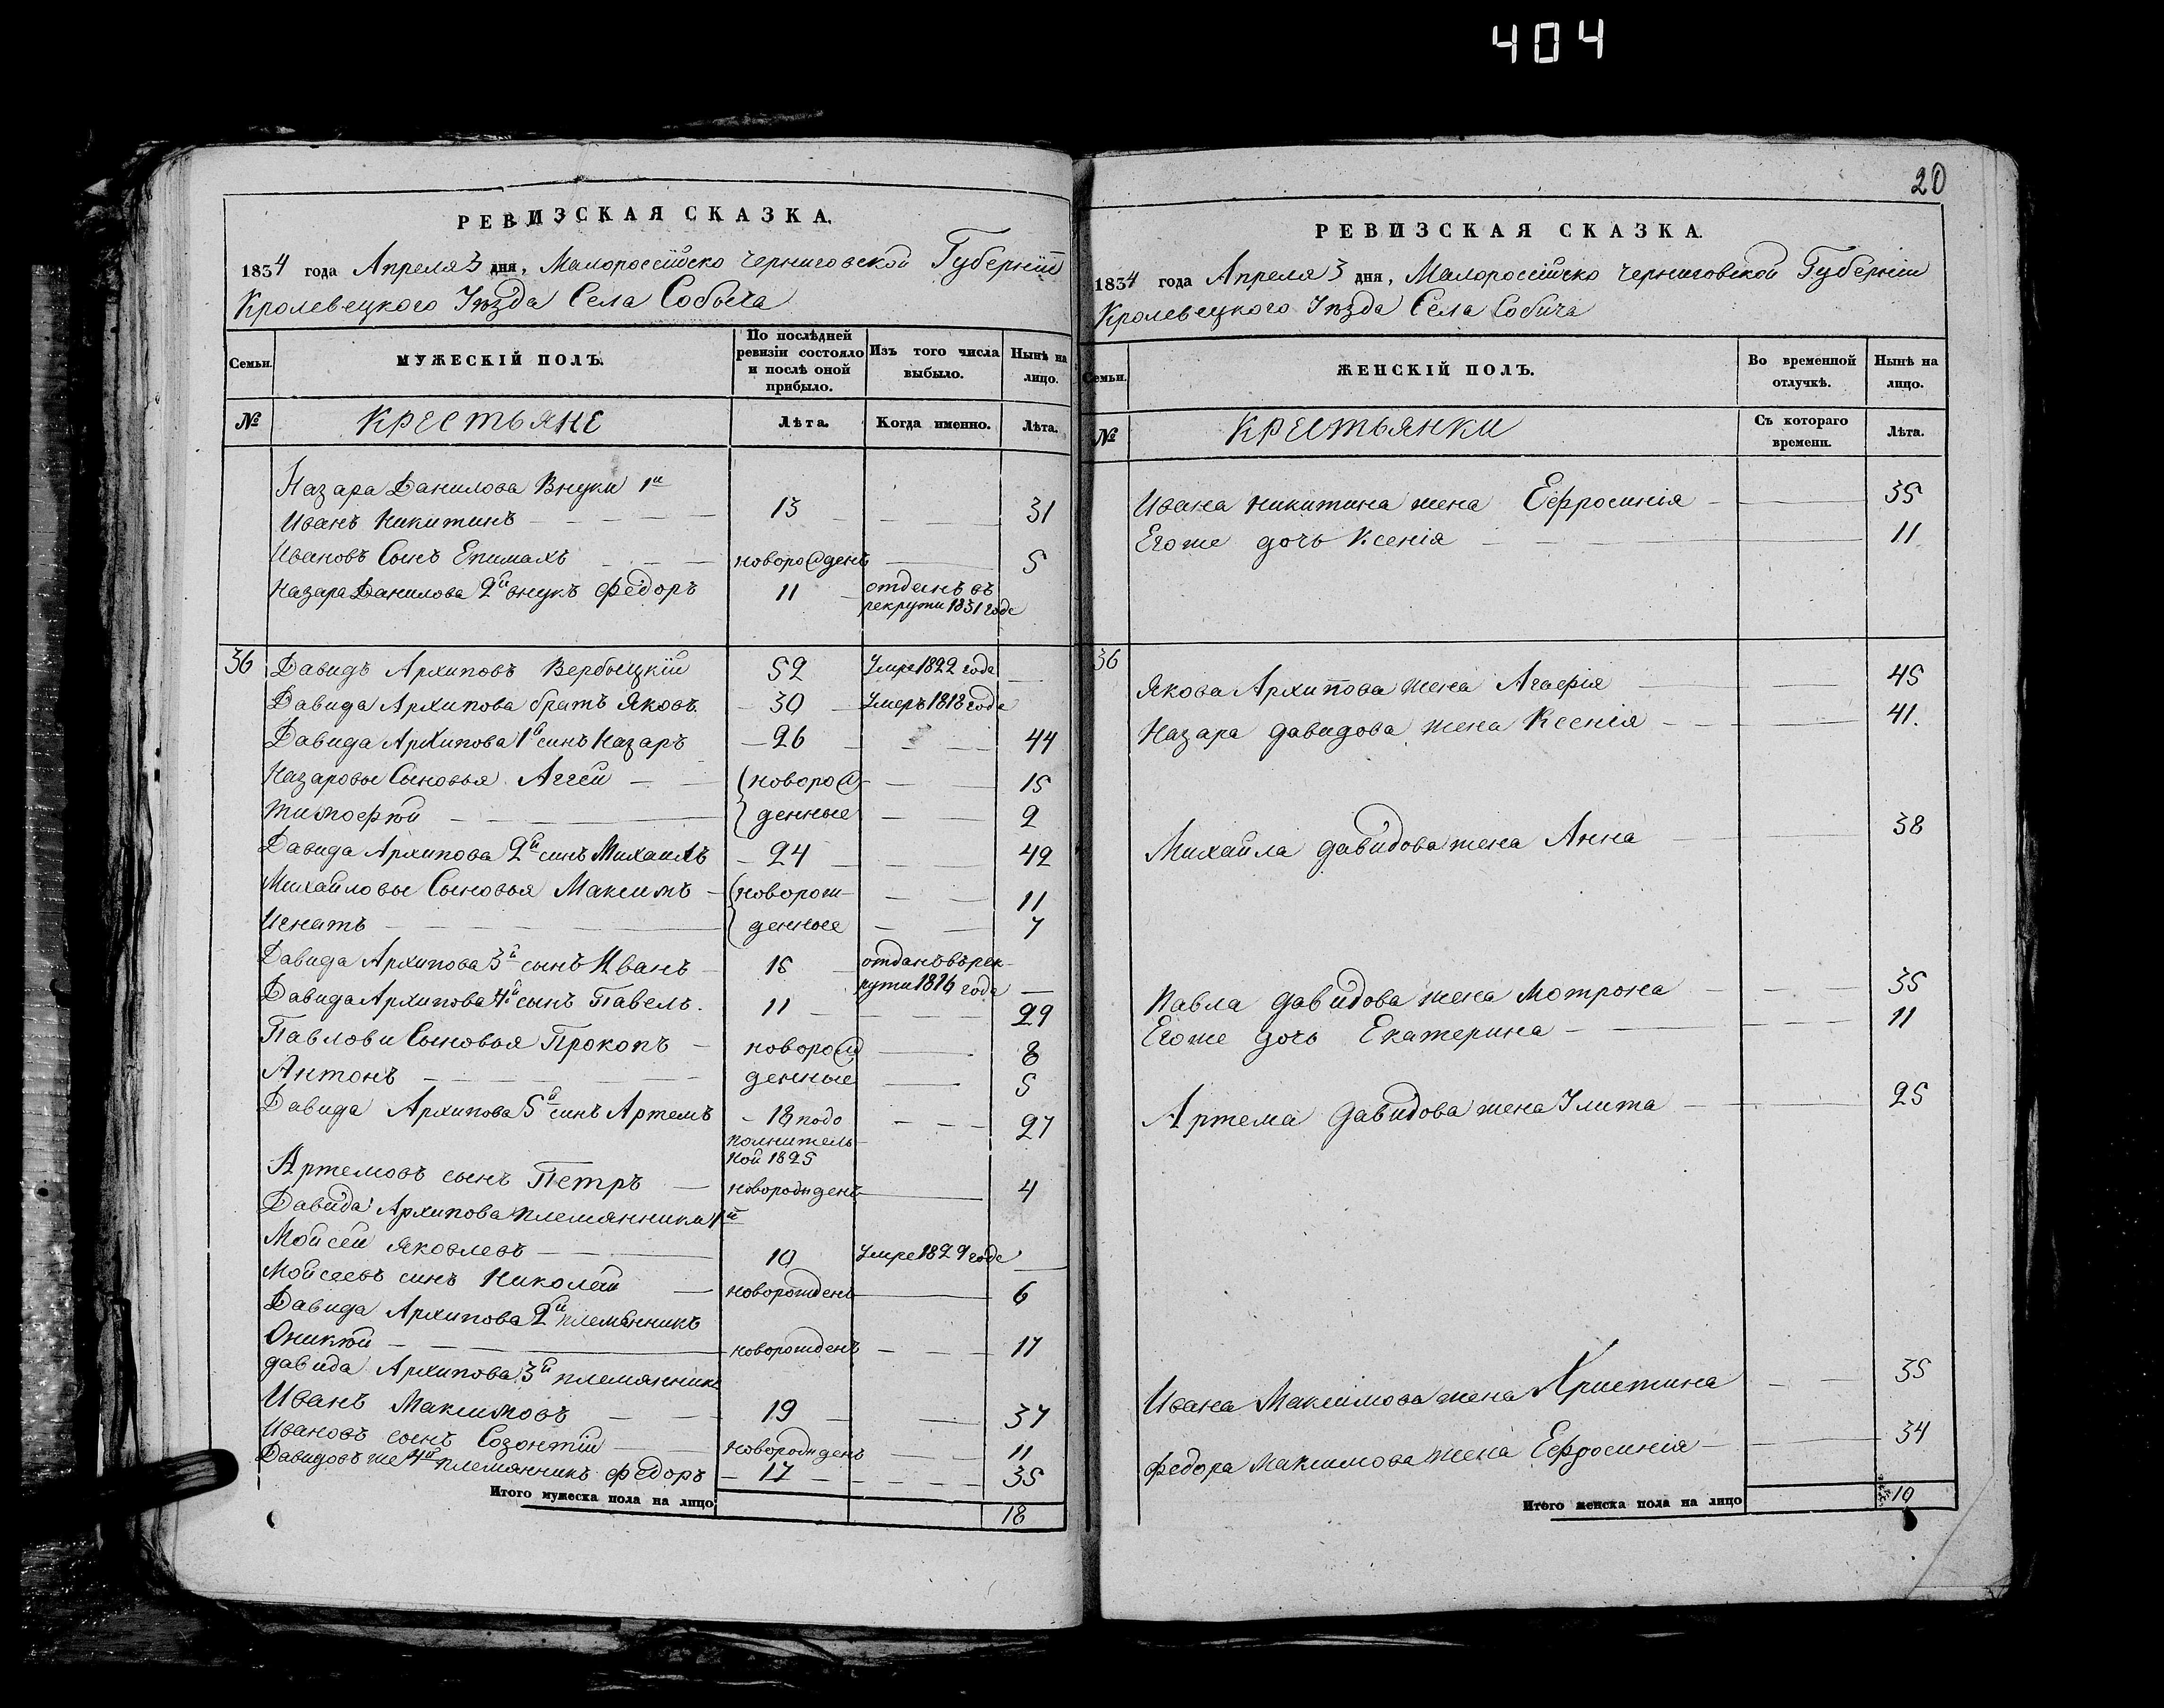 404
РЕВИЗСКАЯ СКАЗКА.
1834 года Апреля 3 дня, Малороссійско Черниговской Губерніи
Кролевецкого Уѣзда Села Собыча
Семьи. МУЖЕСКІЙ ПОЛЪ. По послѣдней ревизіи состояло и послѣ оной прибыло. Изъ того числа выбыло. Нынѣ на лицо.
№ Крестьяне Лѣта. Когда именно. Лѣта.
Назара Данилова Внуки 1й
Иванъ Никитинъ 13 31
Ивановъ Сынъ Епимахъ новорожденъ 5
Назара Данилова 2й внукъ Федоръ 11 отданъ въ
рекруты 1831 годе
36 Давидъ Архиповъ Вербыцкій 52 Умре 1822 года
Давида Архипова братъ Яковъ. 30 Умеръ 1818 года
Давида Архипова 1й синъ Назаръ 26 44
Назаровы Сыновья Аггей (новорож 15
Тимофѣй денные 2
Давида Архипова 2й синъ Михаилъ 24 42
Михайловы Сыновья Максимъ (новорож- 11
Игнатъ денные 7
Давида Архипова 3й сынъ Иванъ 15 отданъ въ рек-
рути 1826 года
Давида Архипова 4й сынъ Павелъ. 11 29
Павлови Сыновья Прокопъ новорож 8
Антонъ денные 5
Давида Архипова 5й синъ Артемъ 18 подо 27
полнитель-
ной 1825
Артемовъ сынъ Петръ новорожденъ 4
Давида Архипова племянники 1й
Мойсей Яковлевъ 10 Умре 1829 годе
Мойсеевъ синъ Николай новорожденъ 6
Давида Архипова 2й племянникъ
Оникѣй новорожденъ 17
давида Архипова 3й племянникъ
Иванъ Максимовъ 19 37
Ивановъ сынъ Созонтій новорожденъ 11
Давидовъ же 4й племянникъ Федоръ 17 35
Итого мужеска пола на лицо 18
20
РЕВИЗСКАЯ СКАЗКА.
1834 года Апреля 3 дня, Малороссійско Черниговской Губерніи
Кролевецкого Уѣзда Села Собича
Семьи. ЖЕНСКІЙ ПОЛЪ. Во временной отлучкѣ. Нынѣ на лицо.
№ Крестьянки Съ котораго времени. Лѣта.
Ивана Никитина жена Ефросинія 35
Егоже дочь Ксенія 11
36
Якова Архипова жена Агафія 45
Назара давидова жена Ксенія 41.
Михайла давидова жена Анна 38
Павла давидова жена Мотрона 35
Егоже дочь Екатерина 11
Артема давидова жена Улита 25
Ивана Максимова жена Христина 35
Федора Максимова жена Ефросинія 34
Итого женска пола на лицо 10